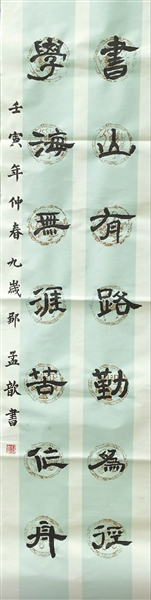 書山有路勤為徑
學海無涯苦作舟
壬寅年仲春九歲鄒孟歆書